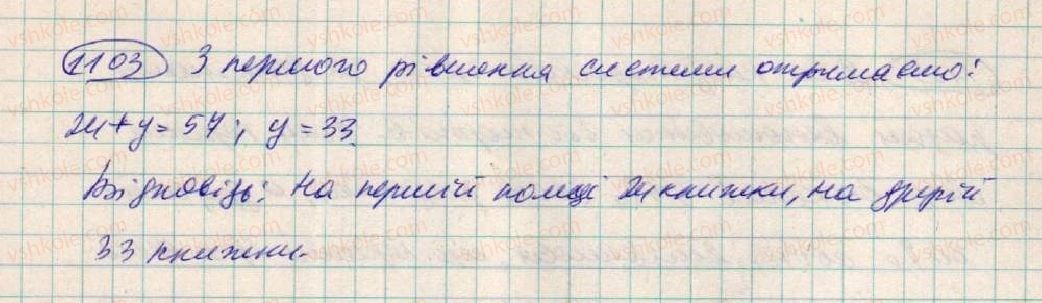 1103 З першого рівняння системи отримаємо:
24 + y = 57; y = 33.
Відповідь: на першій полиці 24 книжки, на другій
33 книжки.